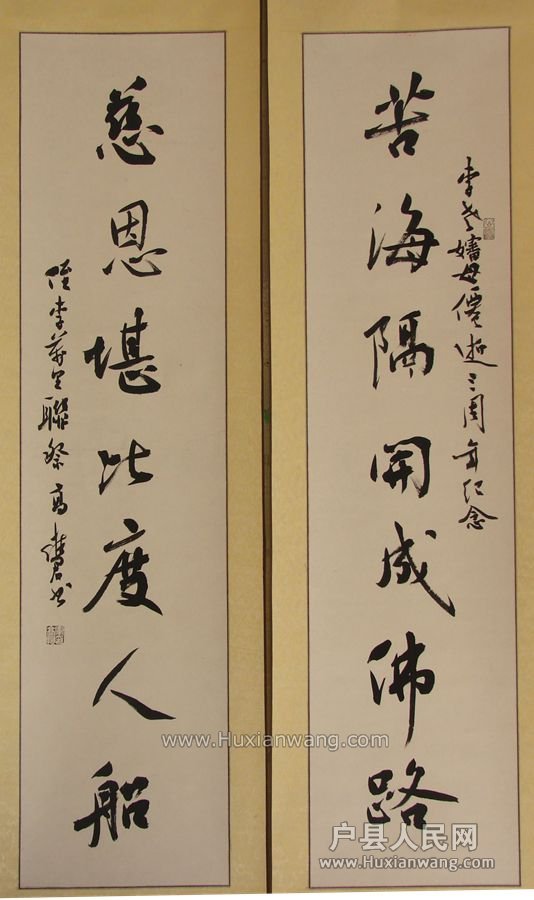 李老嬸母僊逝三周年纪念
苦海隔開成佛路
慈恩堪比度人船
侄李
聯祭 高 书
www.Huxianwang.com
户县人民网
www.Huxianwang.com